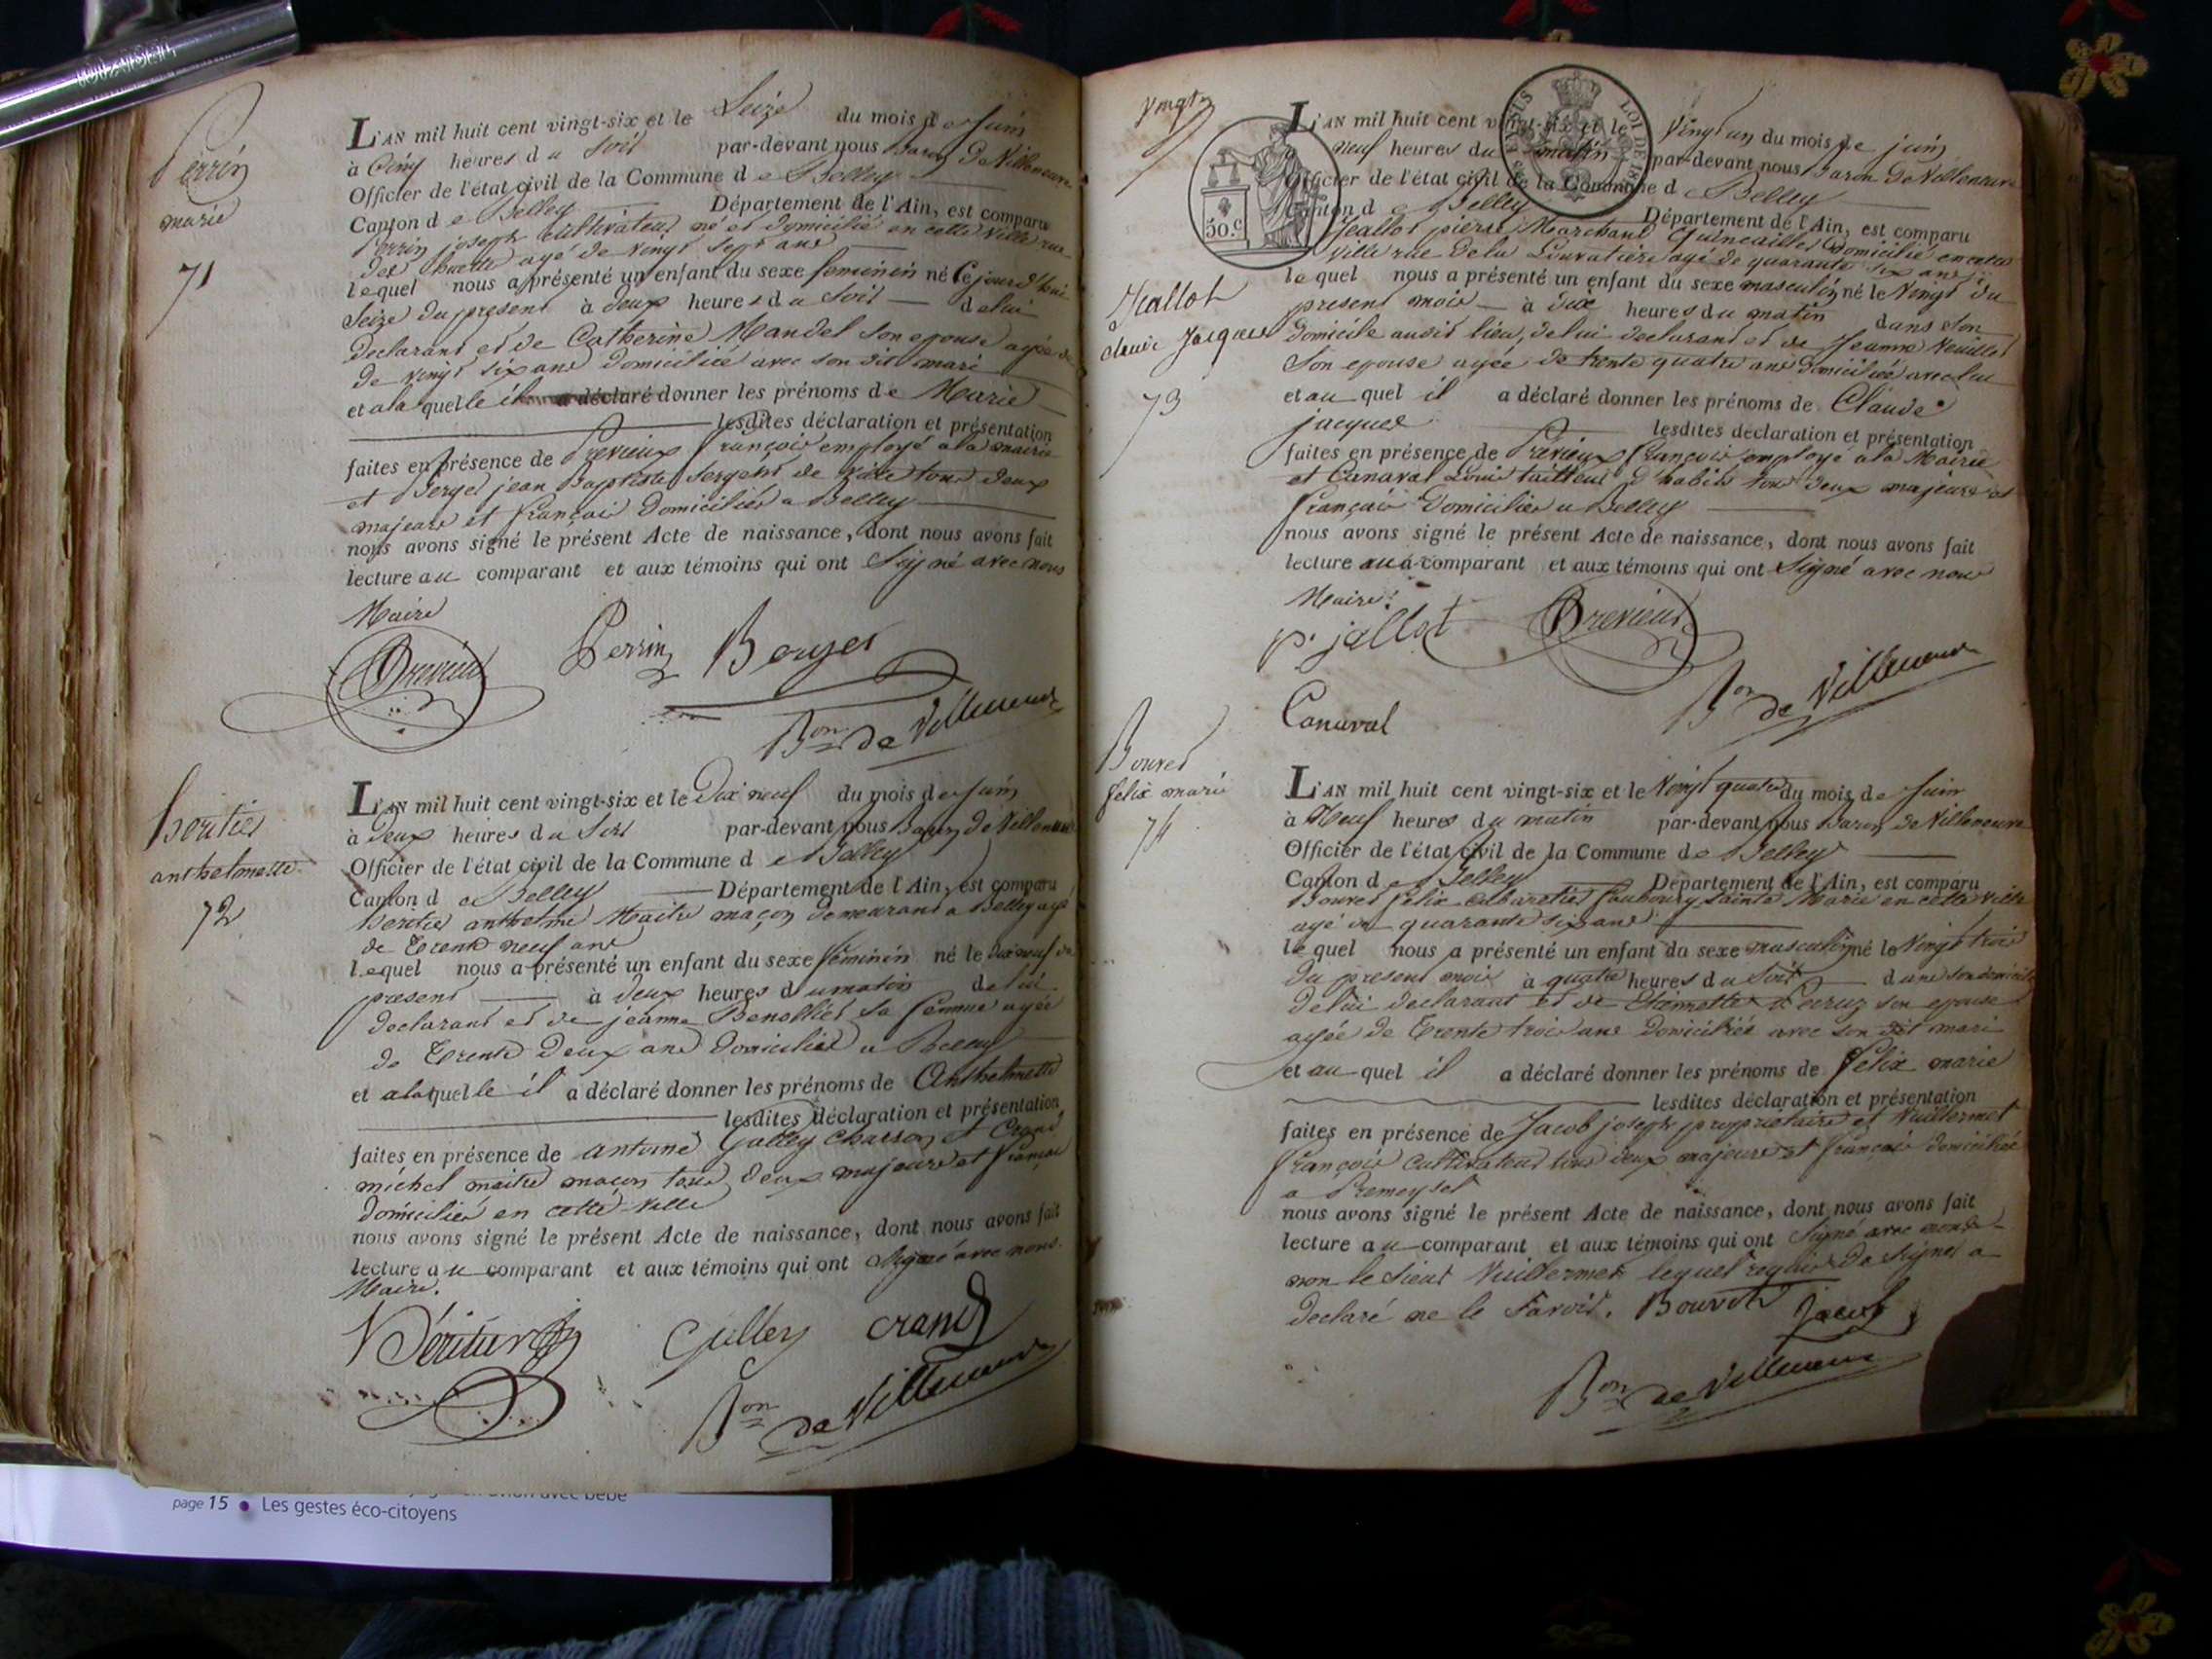 Perrin
marie
71
L'AN mil huit cent vingt-six et le Seize du mois de Juin
à Cinq heures du Soir par-devant nous Baron De Villeneuve
Officier de l'état civil de la Commune de Belley
Canton de Belley Département de l'Ain, est comparu
Perrin joseph cultivateur né et domicilié en cette ville rue
des agé de vingt sept ans
lequel nous a présenté un enfant du sexe feminin né Cejourd'hui
Seize du present à deux heures du Soir de lui
Declarant et de Catherine Mandel son epouse agée de
de vingt six ans domiciliée avec son dit mari
et a la quelle il a déclaré donner les prénoms de Marie
lesdites déclaration et présentation
faites en présence de Previeux françois employé a la mairie
et Berger jean Baptiste Sergent de Ville tous deux
majeurs et français Domiciliés a Belley
nous avons signé le présent Acte de naissance, dont nous avons fait
lecture au comparant et aux témoins qui ont Signé avec nous
Maire
Previeux Perrin Berger
Bon de Villeneuve
heritier
anthelmette
72
L'AN mil huit cent vingt-six et le Dix neuf du mois de Juin
à deux heures du Soir par-devant nous Baron de Villeneuve
Officier de l'état civil de la Commune de Belley
Canton de Belley Département de l'Ain, est comparu
heritier anthelme Maitre maçon demeurant a Belley agé
de Trente neuf ans
lequel nous a présenté un enfant du sexe féminin né le dix neuf du
present à deux heures du matin de lui
declarant et de jeanne sa femme agée
de Trente Deux ans Domiciliée a Belley
et a laquelle il a déclaré donner les prénoms de Anthelmette
lesdites déclaration et présentation
faites en présence de antoine Galley et Crand
michel maitre maçon tous deux majeurs et français
domiciliés en cette Ville
nous avons signé le présent Acte de naissance, dont nous avons fait
lecture au comparant et aux témoins qui ont Signé avec nous
Maire.
Héritier Galley crand
Bon de Villeneuve
Vingt
LOI DE
50.c
L'AN mil huit cent vingt-six et le Vingt un du mois de juin
neuf heures du matin par-devant nous Baron De Villeneuve
Officier de l'état civil de la Commune de Belley
Canton de Belley Département de l'Ain, est comparu
Jeallot pierre Marchand Quincailler Domicilié en cette
ville rue de la Louvatiere agé de quarante six ans
Jeallot
claude Jacques
73
lequel nous a présenté un enfant du sexe masculin né le Vingt du
present mois à dix heures du matin dans son
Domicile audit lieu, de lui declarant et de Jeanne Veuillet
Son epouse agée de trente quatre ans Domiciliée avec lui
et au quel il a déclaré donner les prénoms de Claude
jacques lesdites déclaration et présentation
faites en présence de Prévieux françois employé a la Mairie
et Canaval Louis tailleur D'habits tous deux majeurs et
français Domiciliés a Belley
nous avons signé le présent Acte de naissance, dont nous avons fait
lecture au comparant et aux témoins qui ont Signé avec nous
Maire.
p. jallot Previeux
Bon de Villeneuve
Canaval
Bouvet
felix marie
74
L'AN mil huit cent vingt-six et le Vingt quatre du mois de Juin
à Neuf heures du matin par-devant nous Baron de Villeneuve
Officier de l'état civil de la Commune de Belley
Canton de Belley Département de l'Ain, est comparu
Bouvet felix cabaretier faubourg Sainte Marie en cette ville
agé de quarante six ans
lequel nous a présenté un enfant du sexe masculin né le Vingt trois
du present mois à quatre heures du Soir dans son domicile
De lui declarant et de Etiennette son epouse
agée de Trente trois ans Domiciliée avec son dit mari
et au quel il a déclaré donner les prénoms de felix marie
lesdites déclaration et présentation
faites en présence de Jacob joseph propriétaire et Vuillermet
françois Cultivateur tous deux majeurs et français domiciliés
a Premeysel
nous avons signé le présent Acte de naissance, dont nous avons fait
lecture au comparant et aux témoins qui ont Signé avec nous
non le Sieur Vuillermet lequel requis De Signer a
declaré ne le Savoir. Bouvet Jacob
Bon de Villeneuve
page 15 • Les gestes éco-citoyens